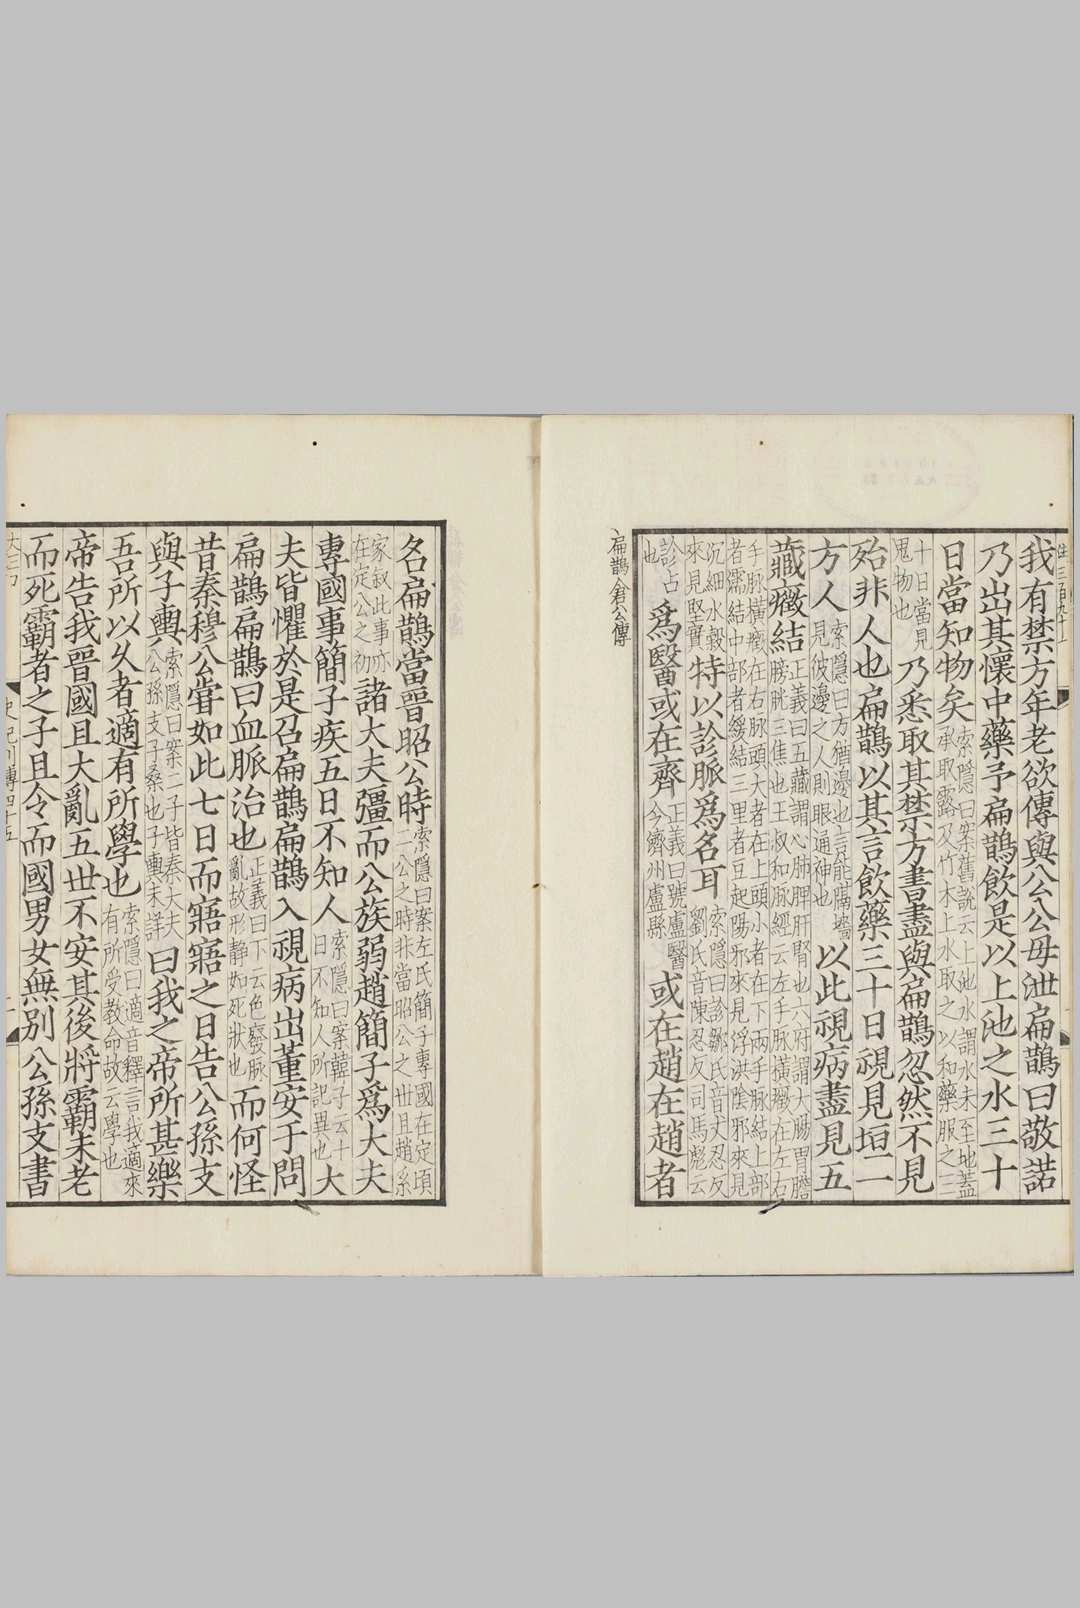 我有禁方年老欲傳與公公毋泄扁鵲曰敬諾
乃出其懷中藥予扁鵲飲是以上池之水三十
日當知物矣索隱曰案舊說云上池水謂水未至地蓋承取露及竹木上水取之以和藥服之三
十日當見鬼物也乃悉取其禁方書盡與扁鵲忽然不見
殆非人也扁鵲以其言飲藥三十日視見垣一
方人索隱曰方猶邊也言能隔墻見彼邊之人則眼通神也以此視病盡見五
藏癥結正義曰五藏謂心肺脾肝腎也六府謂大腸胃膽膀胱三焦也王叔和脉經云左手脉橫癥在左右
手脉橫癥在右脉頭大者在上頭小者在下兩手脉結上部者濡結中部者緩結三里者豆起陽邪來見浮洪陰邪來見
沉細水穀來見堅實特以診脈爲名耳索隱曰診鄒氏音丈忍反劉氏音陳忍反司馬彪云
診占也爲醫或在齊正義曰號盧醫今濟州盧縣或在趙在趙者
扁鵲倉公傳
名扁鵲當晉昭公時索隱曰案左氏簡子專國在定頃二公之時非當昭公之世且趙系
家叙此事亦在定公之初諸大夫彊而公族弱趙簡子爲大夫
專國事簡子疾五日不知人索隱曰案韓子云十日不知人所記異也大
夫皆懼於是召扁鵲扁鵲入視病出董安于問
扁鵲扁鵲曰血脈治也正義曰下云色廢脉亂故形静如死狀也而何怪
昔秦穆公甞如此七日而寤寤之日告公孫支
與子輿索隱曰案二子皆秦大夫公孫支子桑也子輿未詳曰我之帝所甚樂
吾所以久者適有所學也索隱曰適音釋言我適來有所受教命故云學也
帝告我晉國且大亂五世不安其後將霸未老
而死霸者之子且令而國男女無別公孫支書
史記列傳四十五